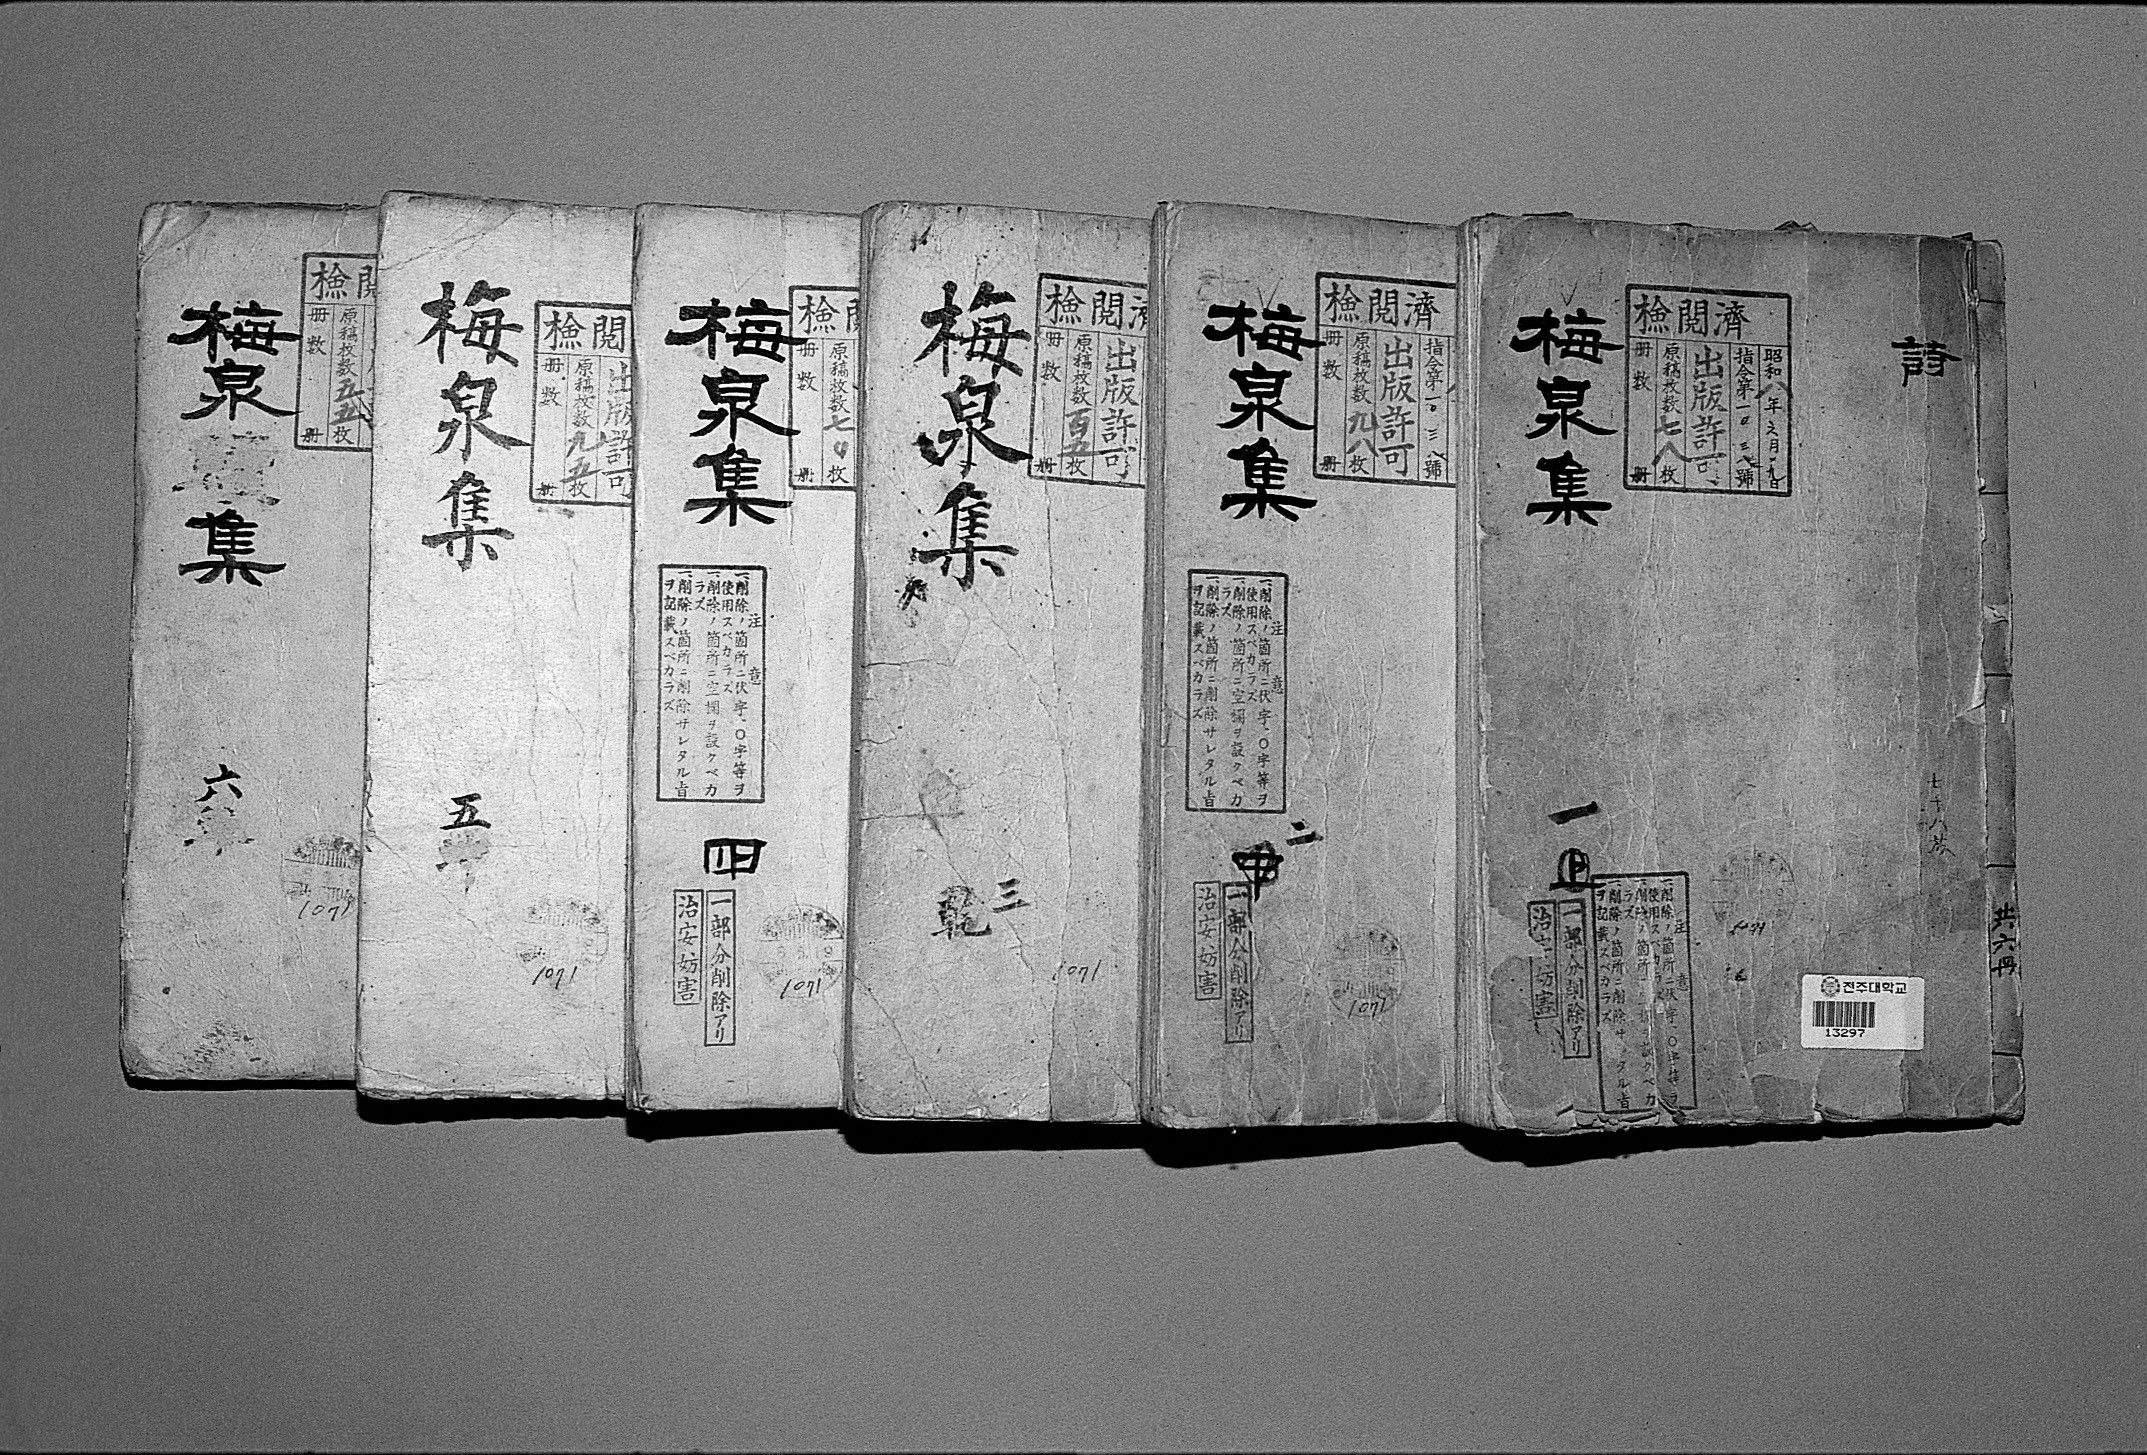 詩
七十八枚
共六冊
전주대학교
13297
検閲済
昭和八年
指令第一〇三八號
出版許可
原稿枚数七八枚
冊数 冊
梅泉集
一
上
一部分削除アリ
治安妨害
注意
一、削除ノ箇所ニ伏字、〇字等ヲ
使用スベカラズ
一、削除ノ箇所ニ空欄ヲ設クベカ
ラズ
一、削除ノ箇所ニ削除サレタル旨
ヲ記載スベカラズ
検閲済
指令第一〇三八號
出版許可
原稿枚数九八枚
冊数 冊
梅泉集
注意
一、削除ノ箇所ニ伏字、〇字等ヲ
使用スベカラズ
一、削除ノ箇所ニ空欄ヲ設クベカ
ラズ
一、削除ノ箇所ニ削除サレタル旨
ヲ記載スベカラズ
二
中
一部分削除アリ
治安妨害
1071
検閲済
出版許可
原稿枚数百五枚
冊数 冊
梅泉集
三
乾
1071
検閲
原稿枚数七〇枚
冊数 冊
梅泉集
注意
一、削除ノ箇所ニ伏字、〇字等ヲ
使用スベカラズ
一、削除ノ箇所ニ空欄ヲ設クベカ
ラズ
一、削除ノ箇所ニ削除サレタル旨
ヲ記載スベカラズ
四
一部分削除アリ
治安妨害
1071
検閲
出版許可
原稿枚数九五枚
冊数 冊
梅泉集
五
1071
検閲
原稿枚数五五枚
冊数 冊
梅泉集
六
1071